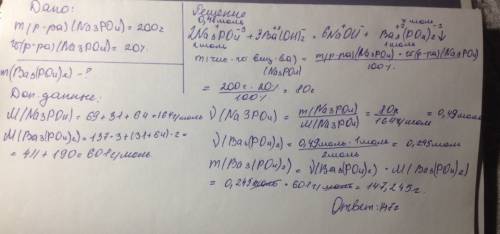 Дано:
m(р-ра)(Na3PO4) = 200г
ω(р-ра)(Na3PO4) = 20%
m(Ba3(PO4)2) - ?
Доп. данные:
M(Na3PO4) = 69+31+64=164г/моль
M(Ba3(PO4)2) = 137·3+(31+64)·2=
= 411+190=601г/моль
Решение
0,49моль
2Na3PO4 + 3Ba(OH)2 = 6NaOH + Ba3(PO4)2↓
2моль 1моль
m(чис-го вещ-ва)(Na3PO4) = m(р-ра)(Na3PO4) · ω(р-ра)(Na3PO4) / 100%
= 200г · 20% / 100% = 80г
ν(Na3PO4) = m(Na3PO4) / M(Na3PO4) = 80г / 164г/моль = 0,49моль
ν(Ba3(PO4)2) = 0,49моль · 1моль / 2моль = 0,245моль
m(Ba3(PO4)2) = ν(Ba3(PO4)2) · M(Ba3(PO4)2)
= 0,245моль · 601г/моль = 147,245г
Ответ: 147г